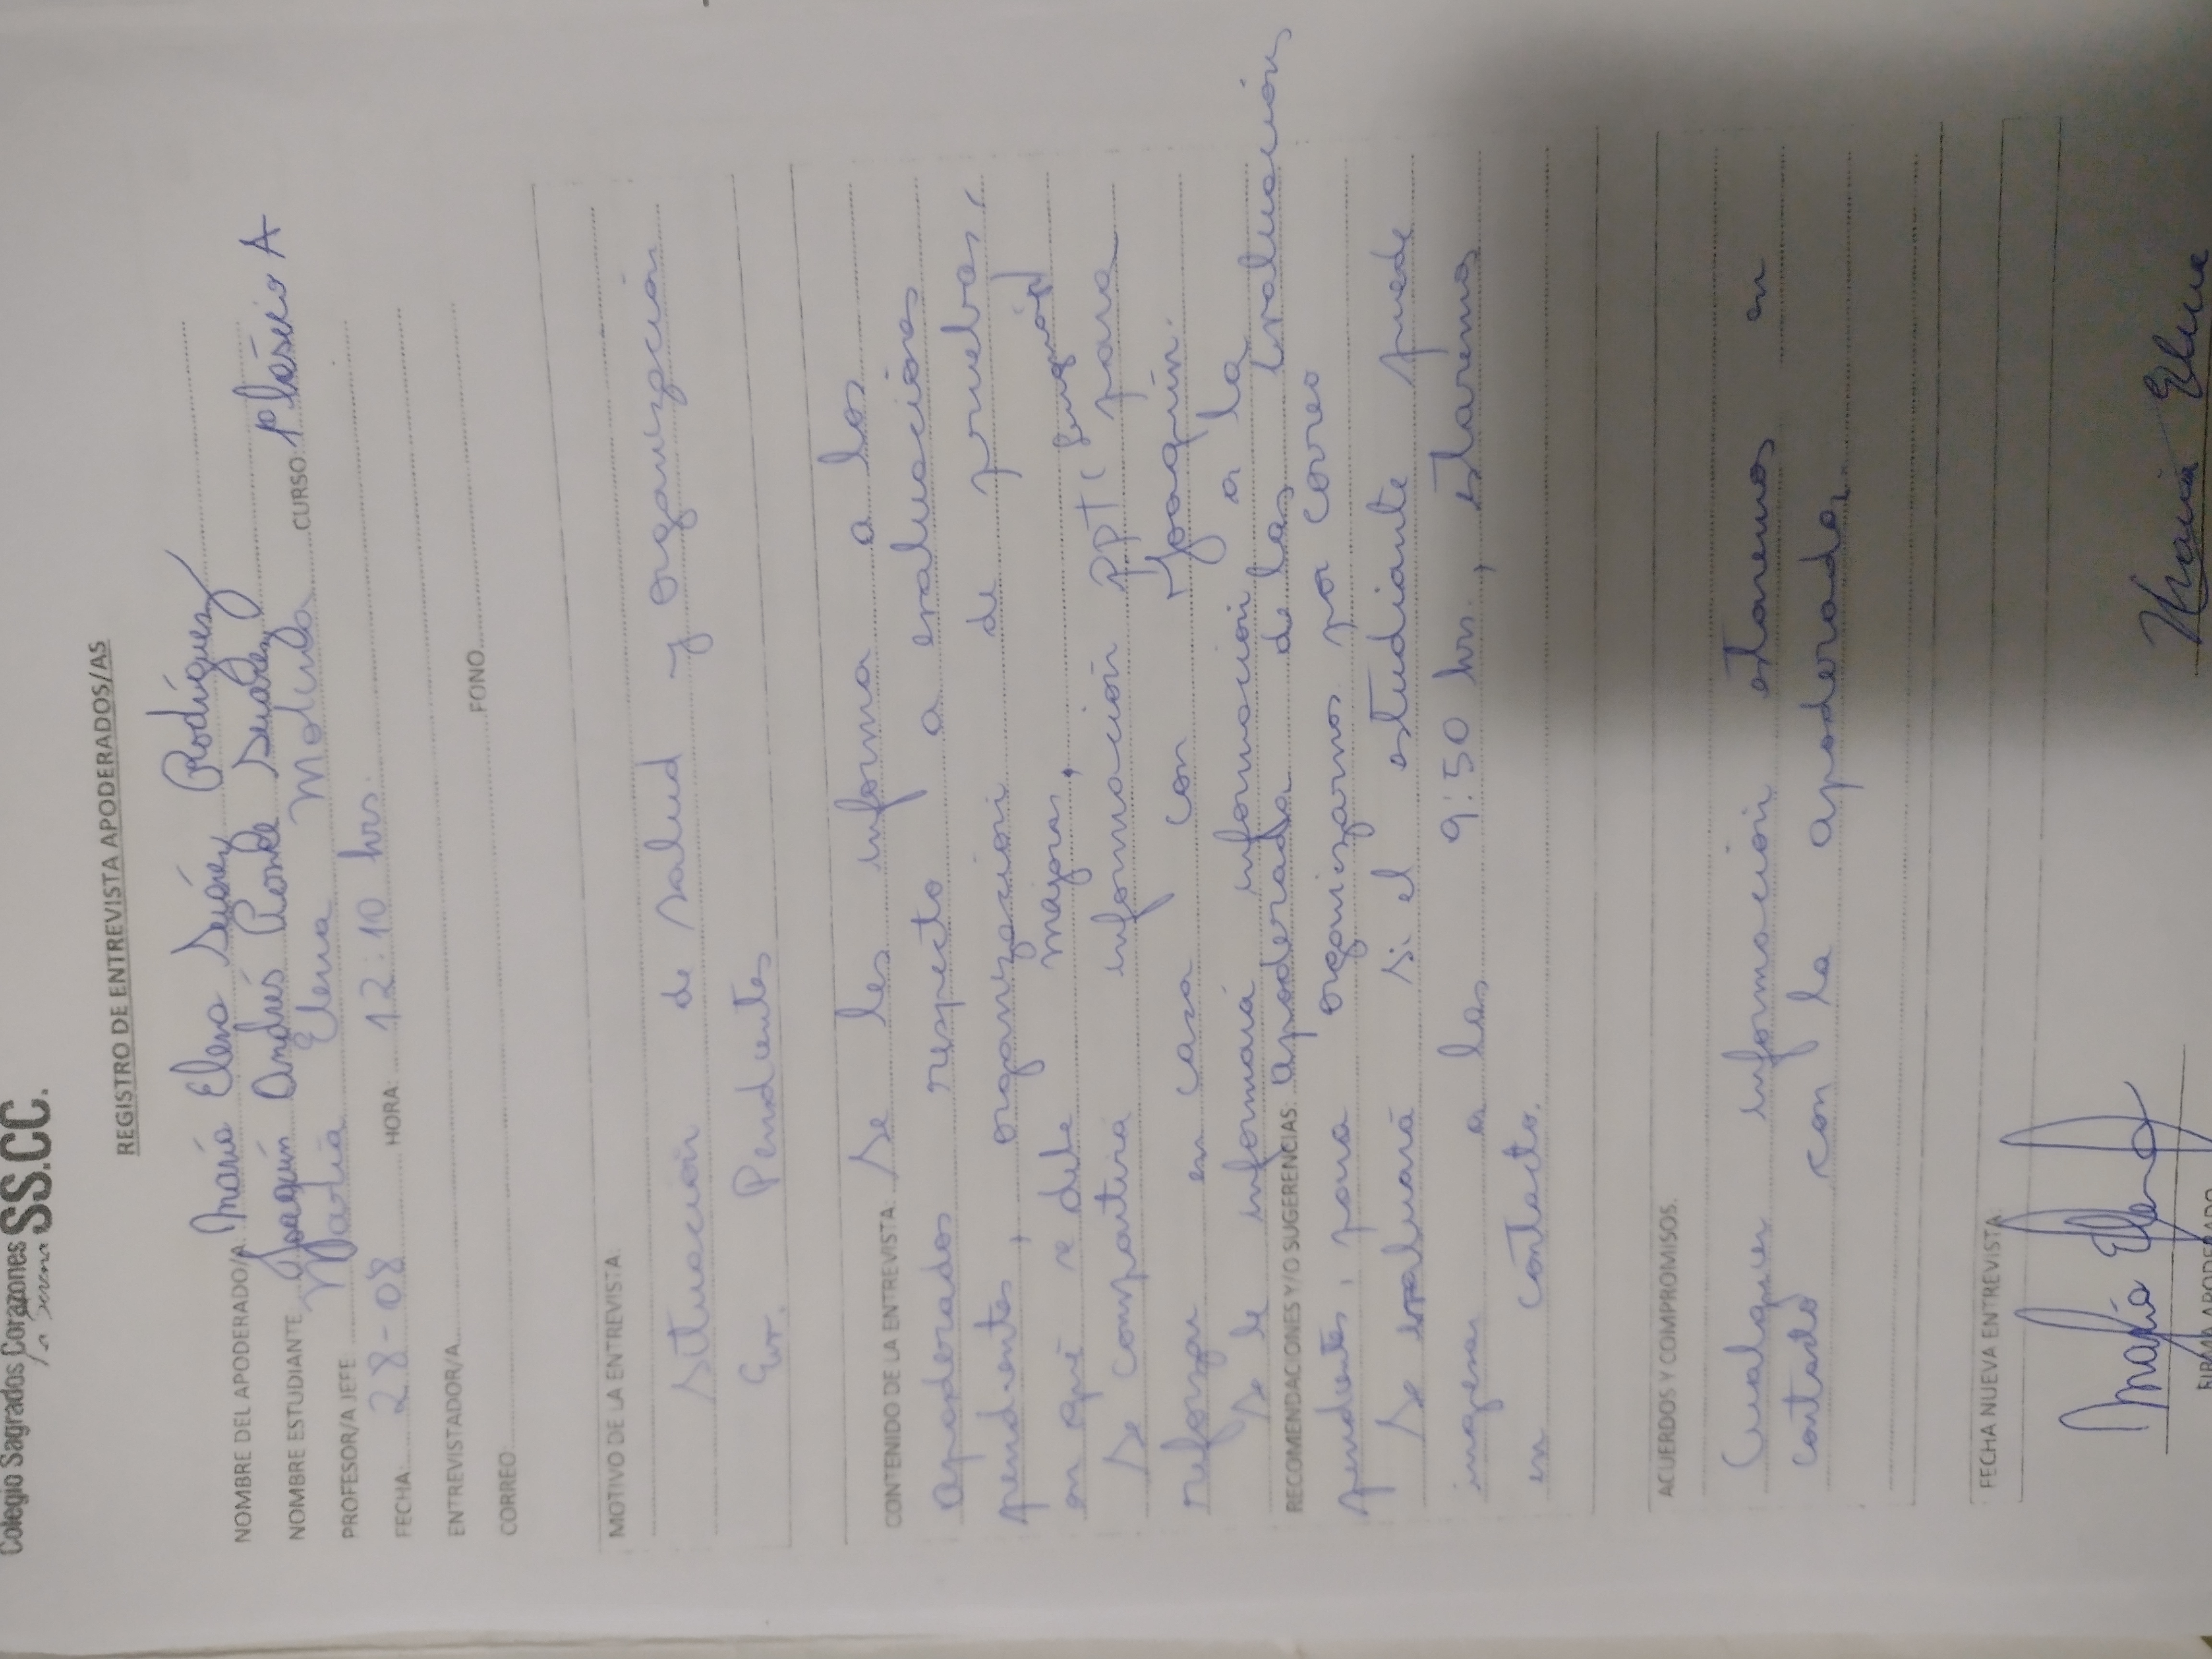 Colegio Sagrados Corazones SS.CC.
La Serena
REGISTRO DE ENTREVISTA APODERADOS/AS
NOMBRE DEL APODERADO/A: María Elena Suárez Rodríguez
NOMBRE ESTUDIANTE Joaquín Andrés Suárez CURSO: 1º básico A
PROFESOR/A JEFE María Elena Molina
FECHA: 28-08 HORA: 12:10 hrs.
ENTREVISTADOR/A
CORREO FONO
MOTIVO DE LA ENTREVISTA
Situación de salud y organización
Ev. Pendientes
CONTENIDO DE LA ENTREVISTA: Se les informa a los
apoderados respecto a evaluaciones
pendientes, organización de pruebas,
en qué se debe mejorar,
Se compartirá información PPT( para
reforzar en casa con Joaquín.
Se le informará información a la
RECOMENDACIONES Y/O SUGERENCIAS: apoderada de las evaluación
pendientes, para organizarnos por correo
Se evaluará si el estudiante puede
ingresar a las 9:50 hrs., estaremos
en contacto.
ACUERDOS Y COMPROMISOS.
Cualquier información estaremos en
contacto con la apoderada.
FECHA NUEVA ENTREVISTA
María Elena
María Elena
FIRMA APODERADO